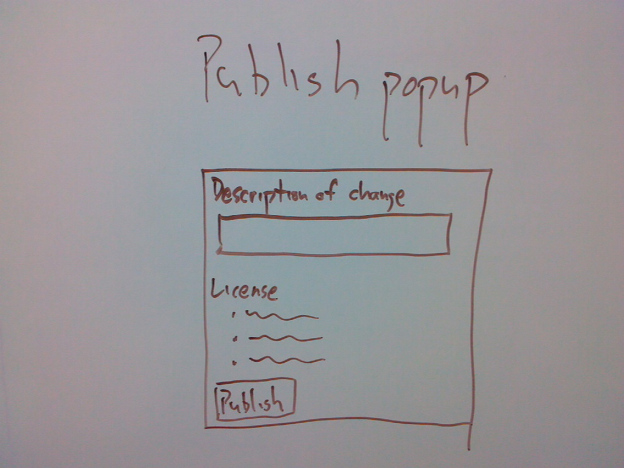 Publish popup
Description of change
License
Publish